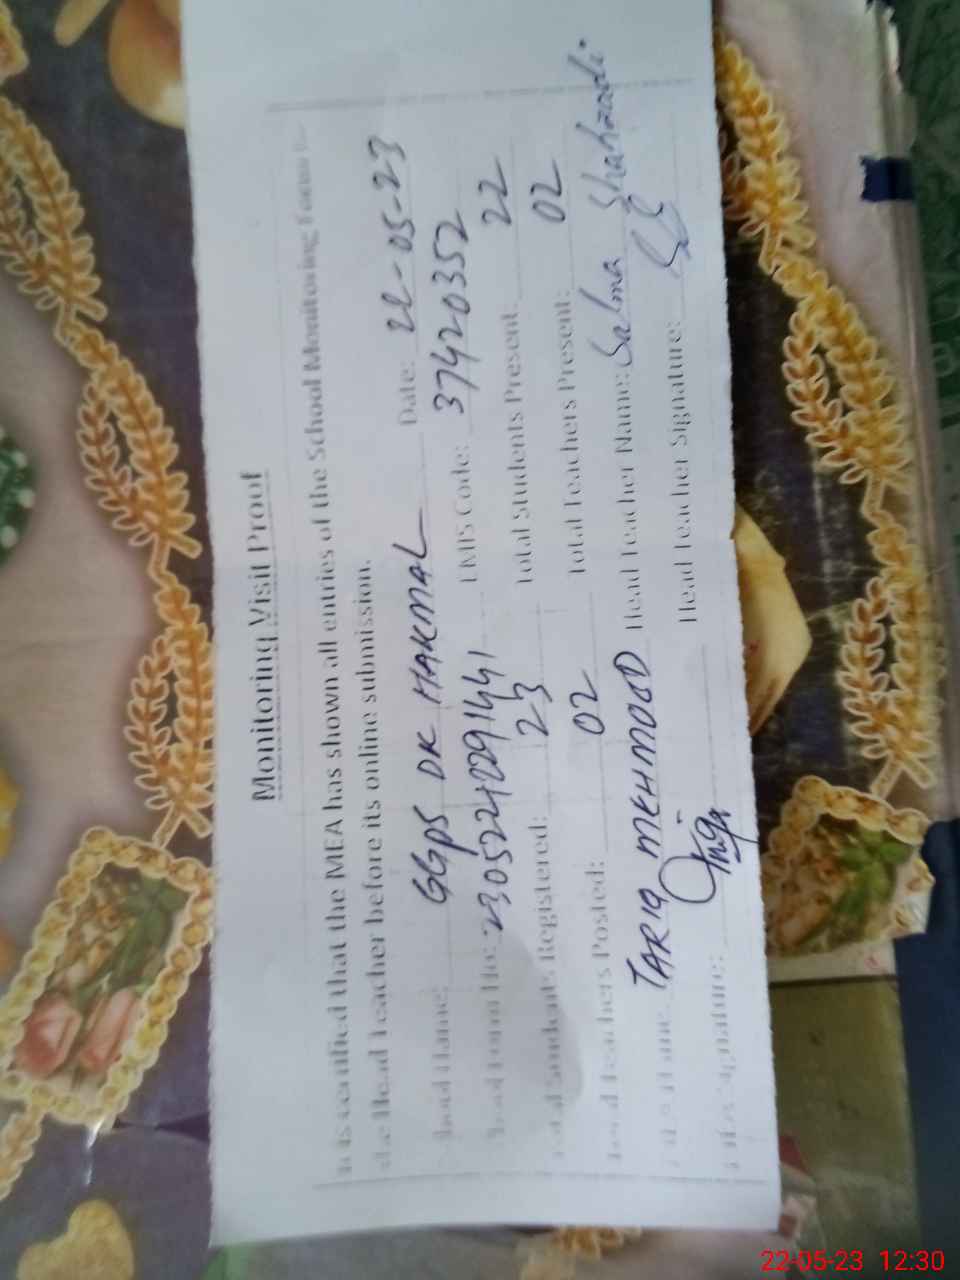 Monitoring Visit Proof
It is certified that the MEA has shown all entries of the School Monitoring Form to
the Head Teacher before its online submission.
School Name: GGPS DK HAKMAL Date: 22-05-23
EMIS Code: 37420352
Total Students Registered: 23 Total Students Present: 22
Total Teachers Posted: 02 Total Teachers Present: 02
TARIQ MEHMOOD Head Teacher Name: Salma Shahzadi.
Signature: Head Teacher Signature:
22-05-23 12:30